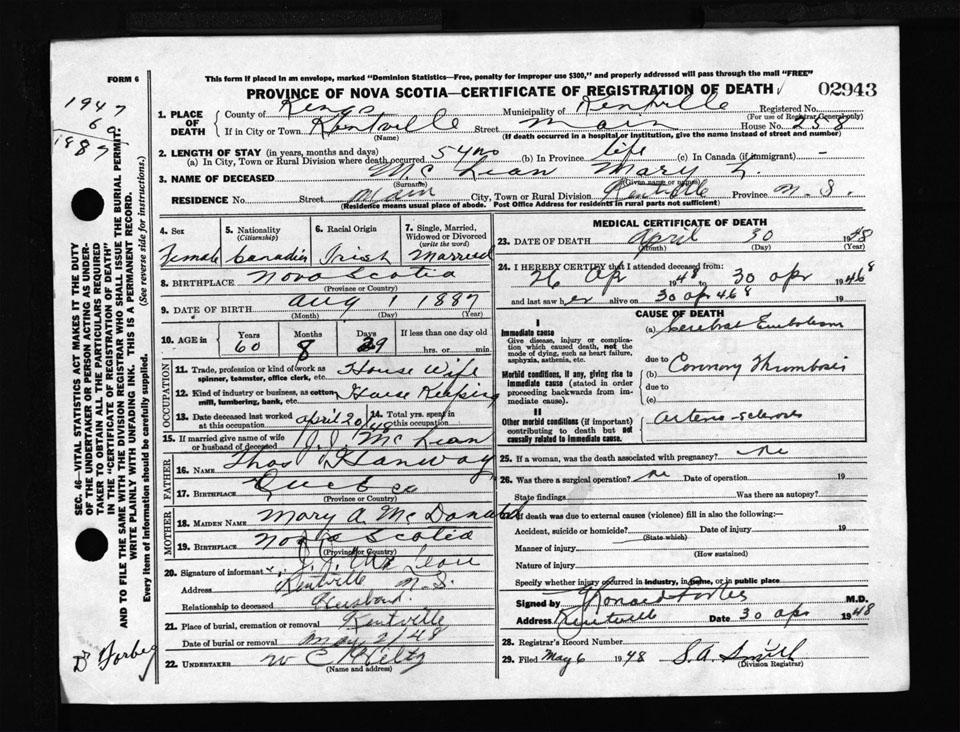 FORM 6
This form if placed in an envelope, marked "Dominion Statistics—Free, penalty for improper use $300," and properly addressed will pass through the mail "FREE"
PROVINCE OF NOVA SCOTIA—CERTIFICATE OF REGISTRATION OF DEATH
02943
1947
60
1887
1. PLACE OF DEATH
County of Kings Municipality of Kentville Registered No.
(For use of Registrar General only)
If in City or Town Kentville Street Main House No. 238
(Name) (If death occurred in a hospital or institution, give the name instead of street and number)
2. LENGTH OF STAY (in years, months and days)
(a) In City, Town or Rural Division where death occurred 54 (b) In Province life (c) In Canada (if immigrant) —
3. NAME OF DECEASED Mc Lean Mary L.
(Surname) (Given name or names)
RESIDENCE No. Street Main City, Town or Rural Division Kentville Province N. S.
(Residence means usual place of abode. Post Office Address for residents in rural parts not sufficient)
4. Sex Female
5. Nationality (Citizenship) Canadian
6. Racial Origin Irish
7. Single, Married, Widowed or Divorced (write the word) Married
8. BIRTHPLACE Nova Scotia
(Province or Country)
9. DATE OF BIRTH Aug 1 1887
(Month) (Day) (Year)
10. AGE in Years 60 Months 8 Days 29 If less than one day old
hrs. or min.
OCCUPATION
11. Trade, profession or kind of work as spinner, teamster, office clerk, etc. House Wife
12. Kind of industry or business, as cotton-mill, lumbering, bank, etc. House Keeping
13. Date deceased last worked at this occupation April 20/48
14. Total yrs. spent in this occupation
15. If married give name of wife or husband of deceased J. J. McLean
FATHER
16. NAME Thos Hanway
17. BIRTHPLACE Quebec
(Province or Country)
MOTHER
18. MAIDEN NAME Mary A. McDonald
19. BIRTHPLACE Nova Scotia
(Province or Country)
20. Signature of informant J. J. McLean
Address Kentville N. S.
Relationship to deceased Husband
21. Place of burial, cremation or removal Kentville
Date of burial or removal May 2/48
22. UNDERTAKER W C Hiltz
(Name and address)
MEDICAL CERTIFICATE OF DEATH
23. DATE OF DEATH April 30 1948
(Month) (Day) (Year)
24. I HEREBY CERTIFY that I attended deceased from:
26 Apr 1948 to 30 Apr 1948
and last saw her alive on 30 Apr 1948
CAUSE OF DEATH
I
Immediate cause
Give disease, injury or complication which caused death, not the mode of dying, such as heart failure, asphyxia, asthenia, etc.
(a) Cerebral Embolism
due to
Morbid conditions, if any, giving rise to immediate cause (stated in order proceeding backwards from immediate cause)
(b) Coronary Thrombosis
due to
(c)
II
Other morbid conditions (if important) contributing to death but not causally related to immediate cause.
Arterio-sclerosis
25. If a woman, was the death associated with pregnancy? no
26. Was there a surgical operation? no Date of operation 19
State findings Was there an autopsy?
27. If death was due to external causes (violence) fill in also the following:—
Accident, suicide or homicide? Date of injury 19
(State which)
Manner of injury
(How sustained)
Nature of injury
Specify whether injury occurred in industry, in home, or in public place
Signed by M.D.
Address Kentville Date 30 Apr 1948
28. Registrar's Record Number
29. Filed May 6 1948 S. A. Smith
(Division Registrar)
SEC. 46—VITAL STATISTICS ACT MAKES IT THE DUTY
OF THE UNDERTAKER OR PERSON ACTING AS UNDER-
TAKER TO OBTAIN ALL THE PARTICULARS REQUIRED
IN THE "CERTIFICATE OF REGISTRATION OF DEATH"
AND TO FILE THE SAME WITH THE DIVISION REGISTRAR WHO SHALL ISSUE THE BURIAL PERMIT.
WRITE PLAINLY WITH UNFADING INK. THIS IS A PERMANENT RECORD.
Every item of Information should be carefully supplied. (See reverse side for instructions.)
Dr Forbes